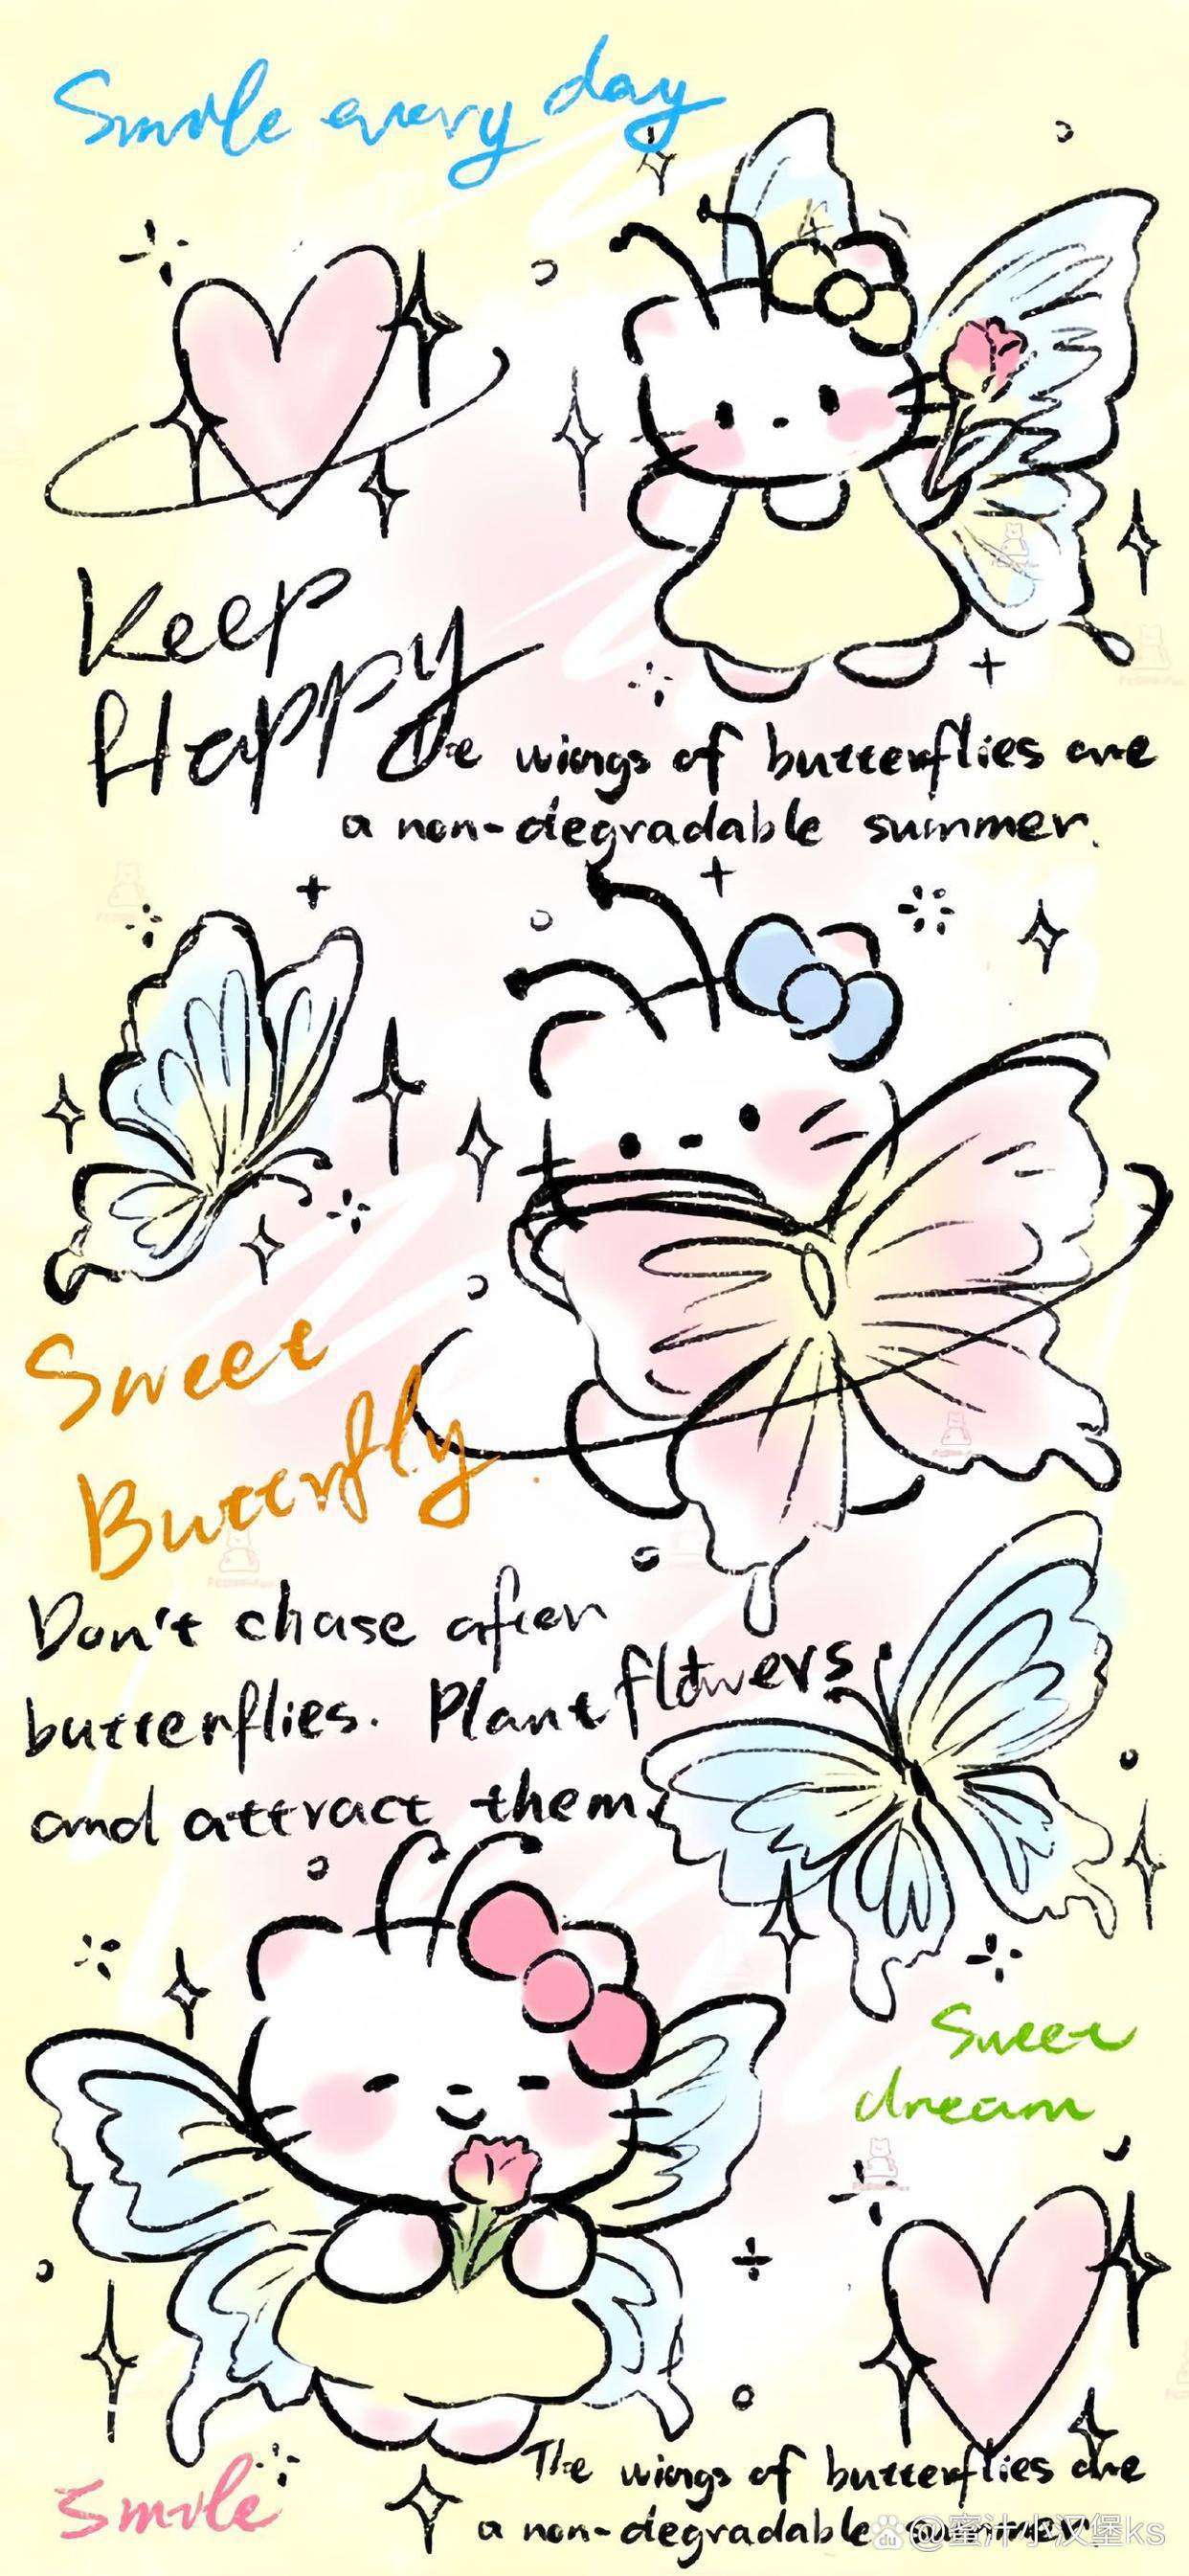 Smile every day
Keep
Happy
The wings of butterflies are
a non-degradable summer.
Sweet
Butterfly
Don't chase after
butterflies. Plant flowers
and attract them.
Sweet
dream
Smile
The wings of butterflies are
a non-degradable summer.
@蜜汁小汉堡ks